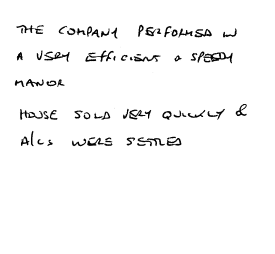 THE COMPANY PERFORMED IN
A VERY EFFICIENT & SPEEDY
MANOR
HOUSE SOLD VERY QUICKLY &
A/CS WERE SETTLED